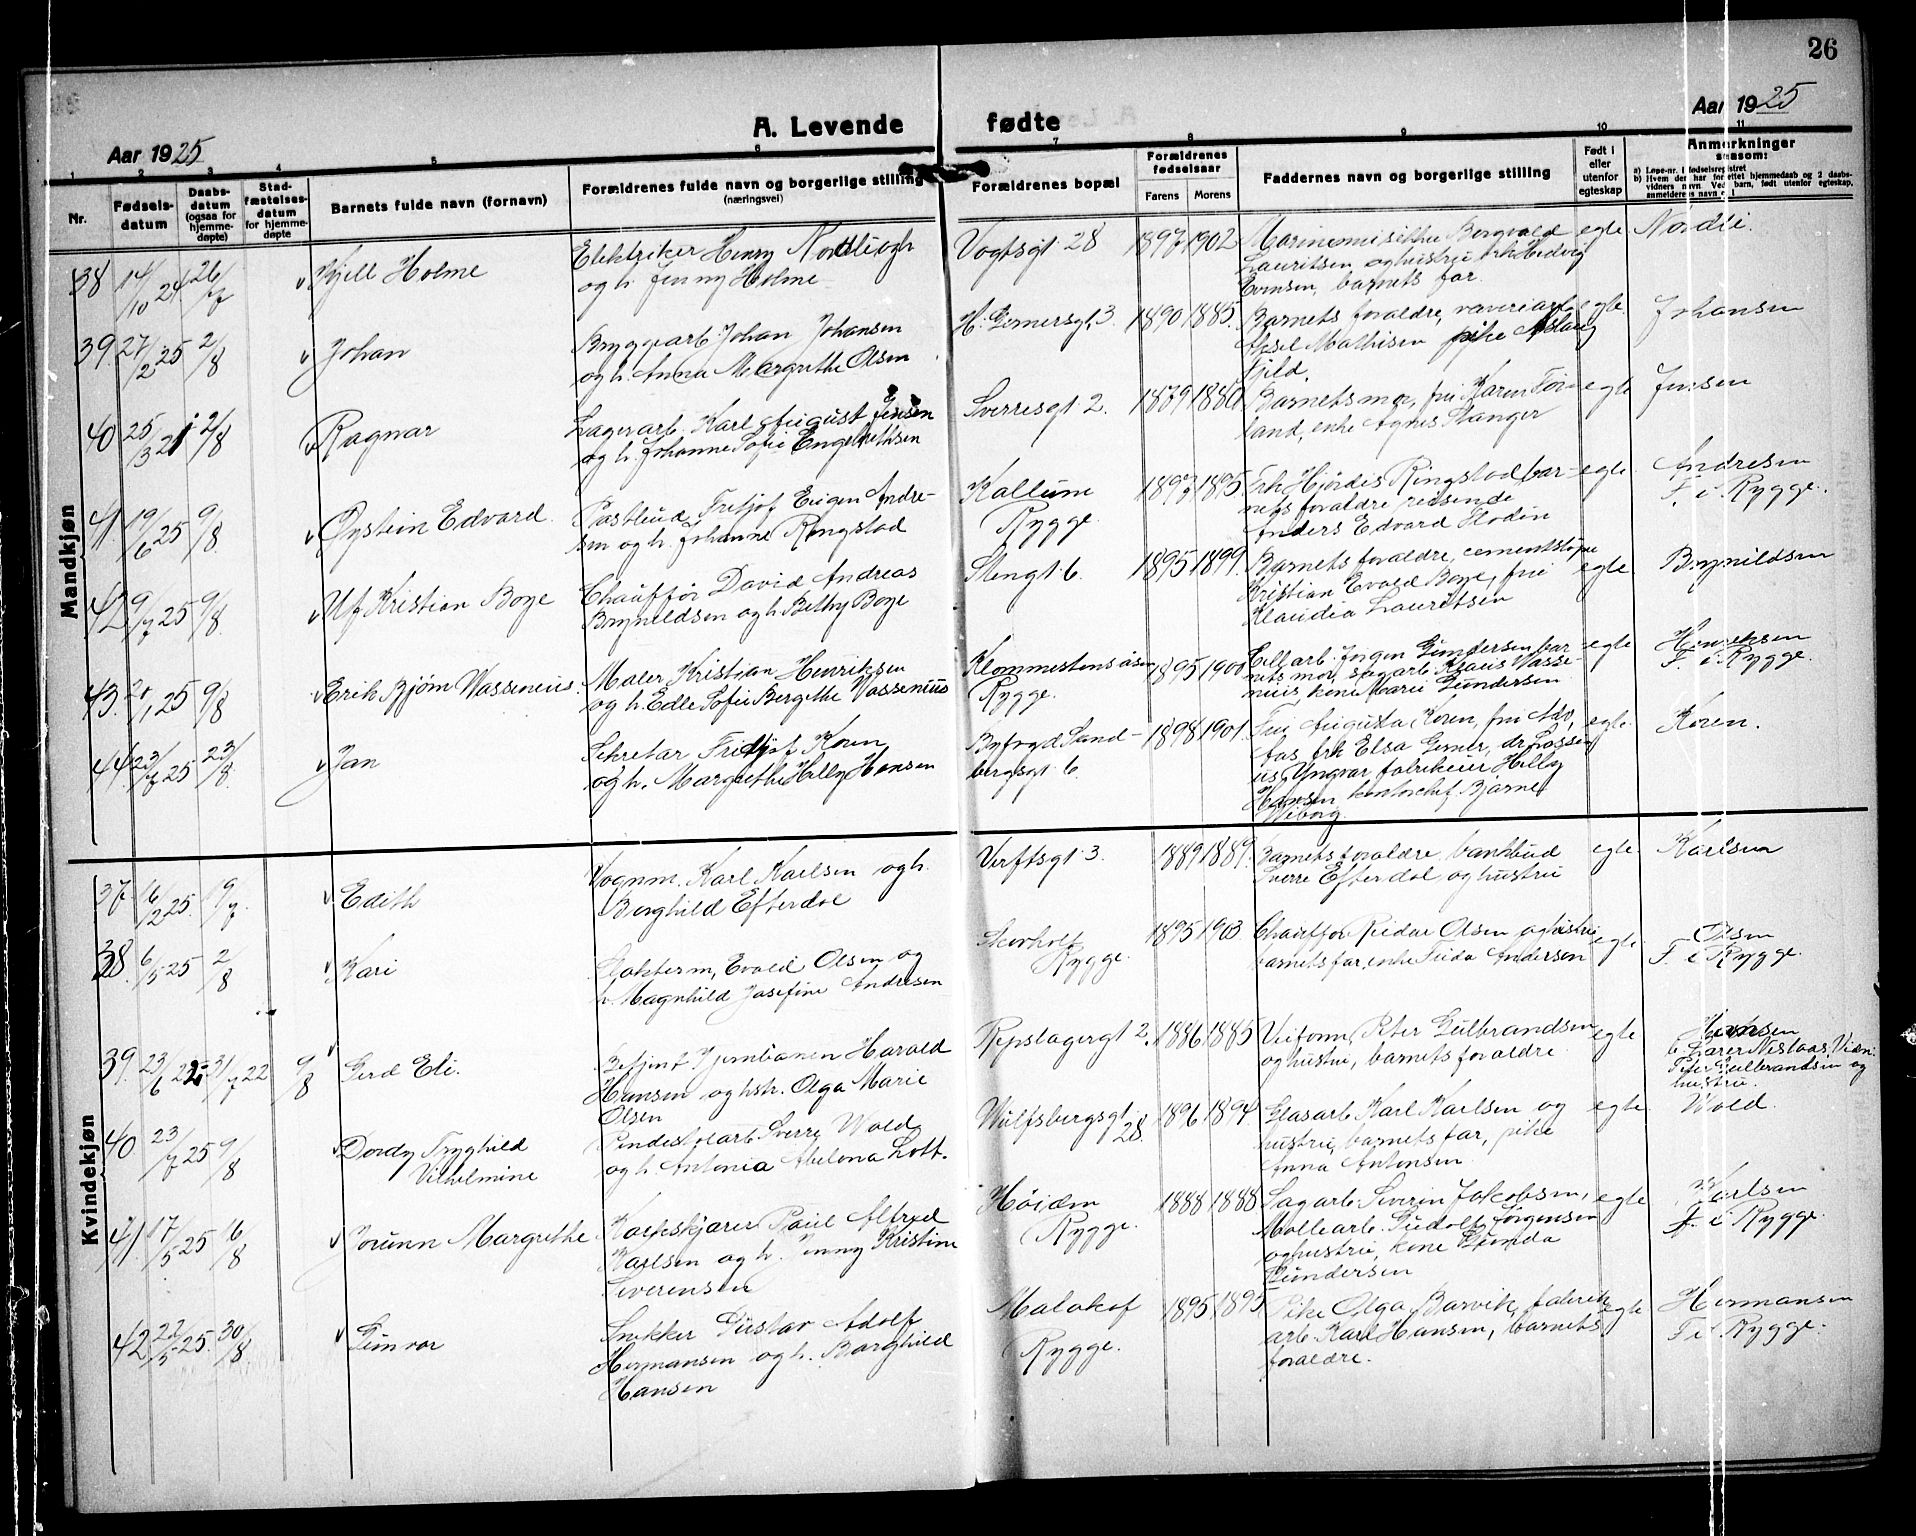 26
Aar 1925
A. Levende fødte
Aar 1925
1 2 3 4 5 6 7 8 9 10 11
Nr.
Fødsels-
datum
Daabs-
datum
(ogsaa for
hjemme-
døpte)
Stad-
fæstelses-
datum
for hjemme-
døpte
Barnets fulde navn (fornavn)
Forældrenes fulde navn og borgerlige stilling
(næringsvei)
Forældrenes bopæl
Forældrenes
fødselsaar
Farens Morens
Faddernes navn og borgerlige stilling
Født i
eller
utenfor
egteskap
Anmerkninger
saasom:
a) Løpe-nr. i fødselsregistret
Mandkjøn
38 14/10 24 26/7 Kjell Holme
Elektriker Henry Nordli og h
og h. Jenny Holme
Vogtsgt 28 1897 1902
Borgvald
Lauritsen og hustru frk Hedvig
Evensen, barnets far
egte Nordli.
39. 27/2 25 2/8 Johan
Bryggearb Johan Johansen
og h. Anna Margrethe Olsen
H. Gernersgt. 3. 1890 1885.
Barnets forældre, væveriarb
Aksel Mathisen pike Aslaug
Fjeld.
egte Johansen
40 25/3 21 2/8 Ragnar
Lagerarb. Karl August Jensen
og h. Johanne Sofie Engebrethsen
Sverresgt 2. 1879 1880
Barnets mor, fru Karen Tor-
land, enke Agnes Stanger
egte Jensen
41. 19/6 25 9/8 Øystein Edvard
Postbud Fritjof Eugen Andre-
sen og h. Johanne Ringstad
Kallum
Rygge. 1897 1895
Frk Hjørdis Ringstad bar-
nets forældre reisende
Anders Edvard Flodin
egte Andresen
F. i Rygge.
42 9/7 25 9/8 Ulf Kristian Boye
Chauffør David Andreas
Brynildsen og h. Bethy Boye
Stengt. 6. 1895 1899.
Barnets forældre, cementstøpe
Kristian Evald Boye, fru
Klaudia Lauritsen
egte Brynildsen
43. 20/1 25 9/8 Erik Bjørn Wassenius.
Maler Kristian Henriksen
og h. Edle Sofie Bergithe Wassenius
Klommestensåsen
Rygge. 1895 1900
Cell arb. Jørgen Gundersen bar
nets mor, sagarb. Klaus Wasse-
nius kone Marie Gundersen
egte Henriksen
F. i Rygge.
44. 23/7 25 23/8 Jan
Sekretær Fridtjof Koren
og h. Margrethe Helly Hansen
Byfogd Sand-
bergsgt. 6. 1898 1901.
Fru Augusta Koren, fru
Aas frk Elsa Gerner, dr.
Yngvar fabrikeier Helly
Hansen, kontorchef Bjarne
Wiborg.
egte Koren.
Kvindekjøn
37. 16/2 25. 19/7. Edith
Vognm. Karl Karlsen og h.
Borghild Efterdal
Verftsgt 3. 1889 1889.
Barnets forældre, bankbud
Sverre Efterdal og hustru
egte Karlsen
38. 6/5 25 2/8 Kari
Slakterm. Evald Olsen og
h. Magnhild Josefine Andresen
Rygge. 1895 1903
Chauffør Reidar Olsen og hustru
barnets far, enke Frida Andersen
egte Olsen
F. i Rygge.
39. 23/6 22 31/7 22 9/8 Gerd Eli.
Betjent Jernbanen Harald
Hansen og hstr. Olga Marie
Olsen
Repslagergt 2. 1886 1885
Peter Gulbrandsen
og hustru, barnets forældre
egte Hansen
b. Lærer
Peter Gulbrandsen og
hustru.
40 23/7 25 9/8 Dordy Tryghild
Vilhelmine
Sverre Wold
og h. Antonia Abelona Lott.
Wulfsbergsgt
28. 1896 1894
Glasarb. Karl Karlsen og
hustru, barnets far, pike
Anna Antonsen
egte Wold.
41. 17/5 25 16/8 Jorunn Margrethe
Paul Alfred
Karlsen og h. Jenny Kristine
Severensen
Høiden
Rygge. 1888 1888
Sagarb. Severin Jakobsen,
Møllearb. Gudolf Jørgensen
og hustru, kone Gunda
Gundersen
egte Karlsen
F. i Rygge.
42 22/5 25. 30/8 Gunvor
Snekker Gustav Adolf
Hermansen og h. Borghild
Hansen
Malakof
Rygge. 1895 1895
Pike Olga Barvik, fabrik
arb. Karl Hansen, barnets
forældre.
egte Hermansen
F. i Rygge.